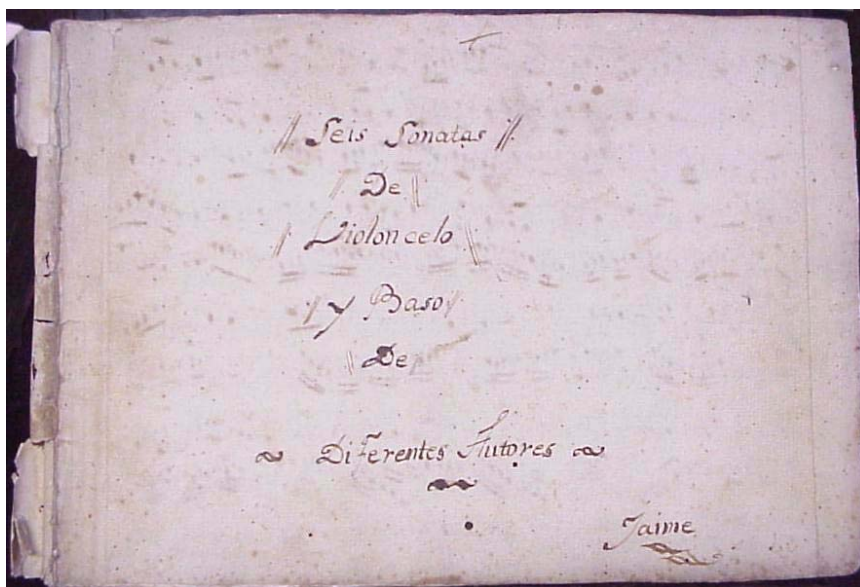 // Seis Sonatas //.
/ De //
// Violoncelo //
/ y Baso //
// De /
~ Diferentes Autores ~
Jaime